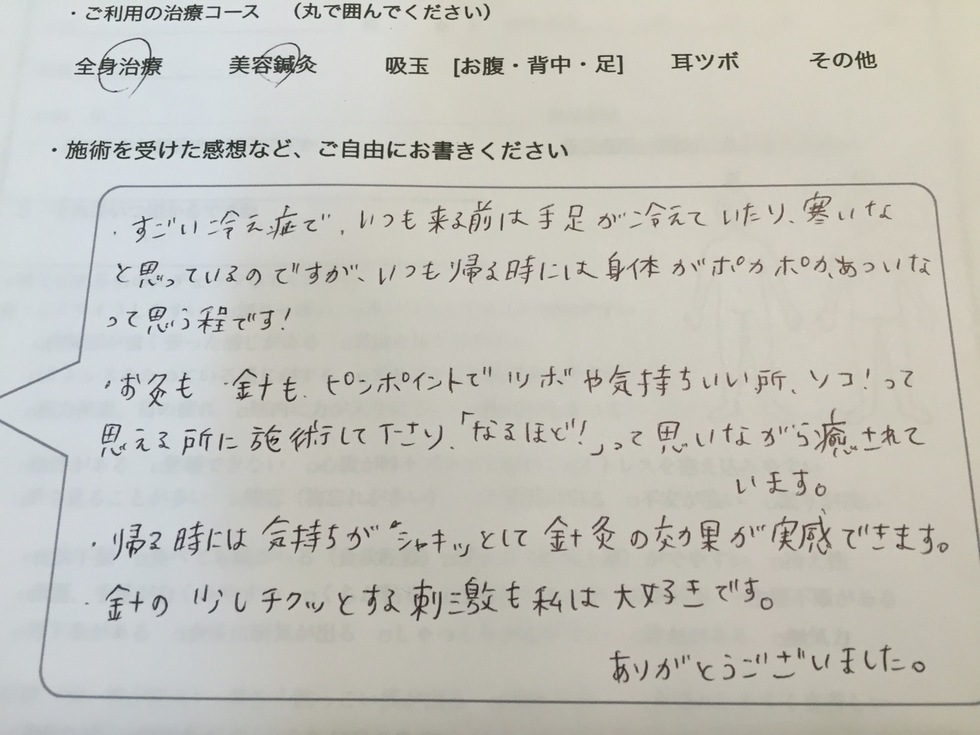 ・ご利用の治療コース （丸で囲んでください）
全身治療 美容鍼灸 吸玉 [お腹・背中・足] 耳ツボ その他
・施術を受けた感想など、ご自由にお書きください
・すごい冷え症で、いつも来る前は手足が冷えていたり、寒いな
と思っているのですが、いつも帰る時には身体がポカポカ、あついな
って思う程です!
・お灸も 針も、ピンポイントでツボや気持ちいい所、ソコ!って
思える所に施術して下さり、「なるほど!」って思いながら癒されて
います。
・帰る時には気持ちが"シャキッとして針灸の効果が実感できます。
・針の少しチクッとする刺激も私は大好きです。
ありがとうございました。